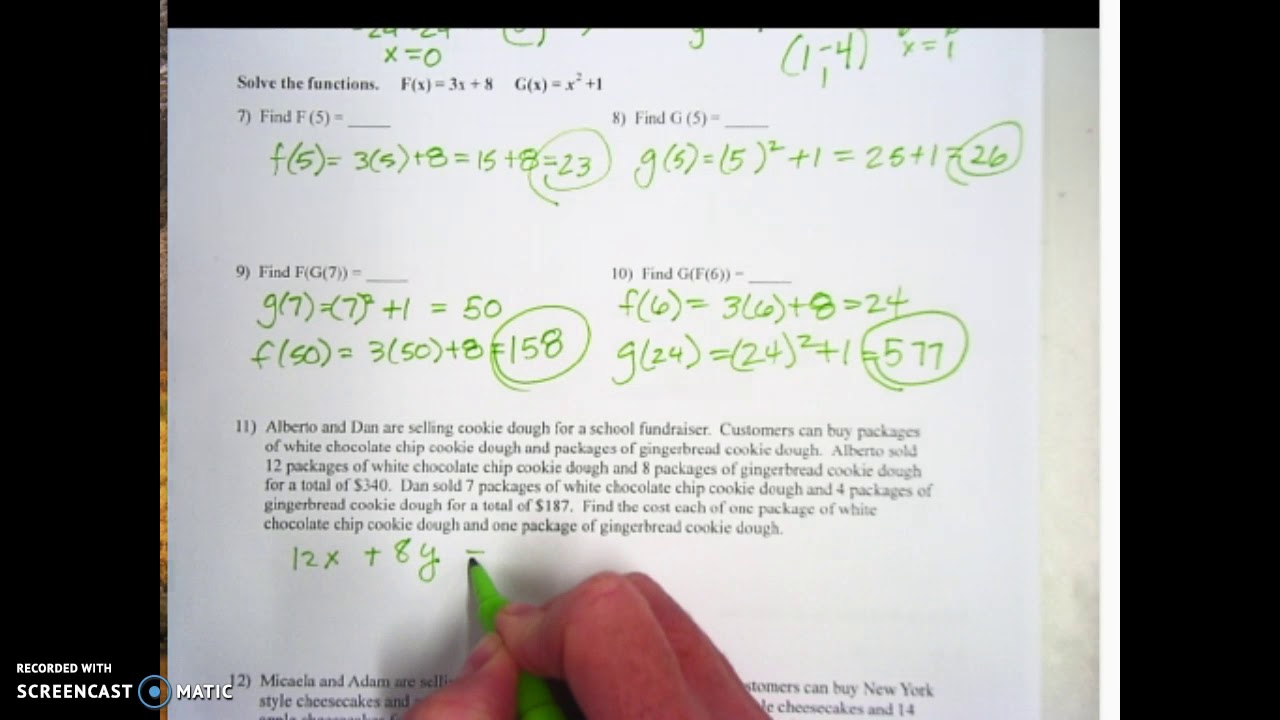 x=0
(1,-4) x=1
Solve the functions. F(x) = 3x + 8 G(x) = x² +1
7) Find F (5) = _____
8) Find G (5) = _____
f(5)= 3(5)+8 = 15 +8 =23
g(5) = (5)² +1 = 25+1 =26
9) Find F(G(7)) = _____
10) Find G(F(6)) = _____
g(7)=(7)² +1 = 50
f(6)= 3(6)+8 =24
f(50) = 3(50)+8 =158
g(24) =(24)²+1 =577
11) Alberto and Dan are selling cookie dough for a school fundraiser. Customers can buy packages
of white chocolate chip cookie dough and packages of gingerbread cookie dough. Alberto sold
12 packages of white chocolate chip cookie dough and 8 packages of gingerbread cookie dough
for a total of $340. Dan sold 7 packages of white chocolate chip cookie dough and 4 packages of
gingerbread cookie dough for a total of $187. Find the cost each of one package of white
chocolate chip cookie dough and one package of gingerbread cookie dough.
12x + 8y =
12) Micaela and Adam are stomers can buy New York
style cheesecakes and cheesecakes and 14
RECORDED WITH
SCREENCAST MATIC